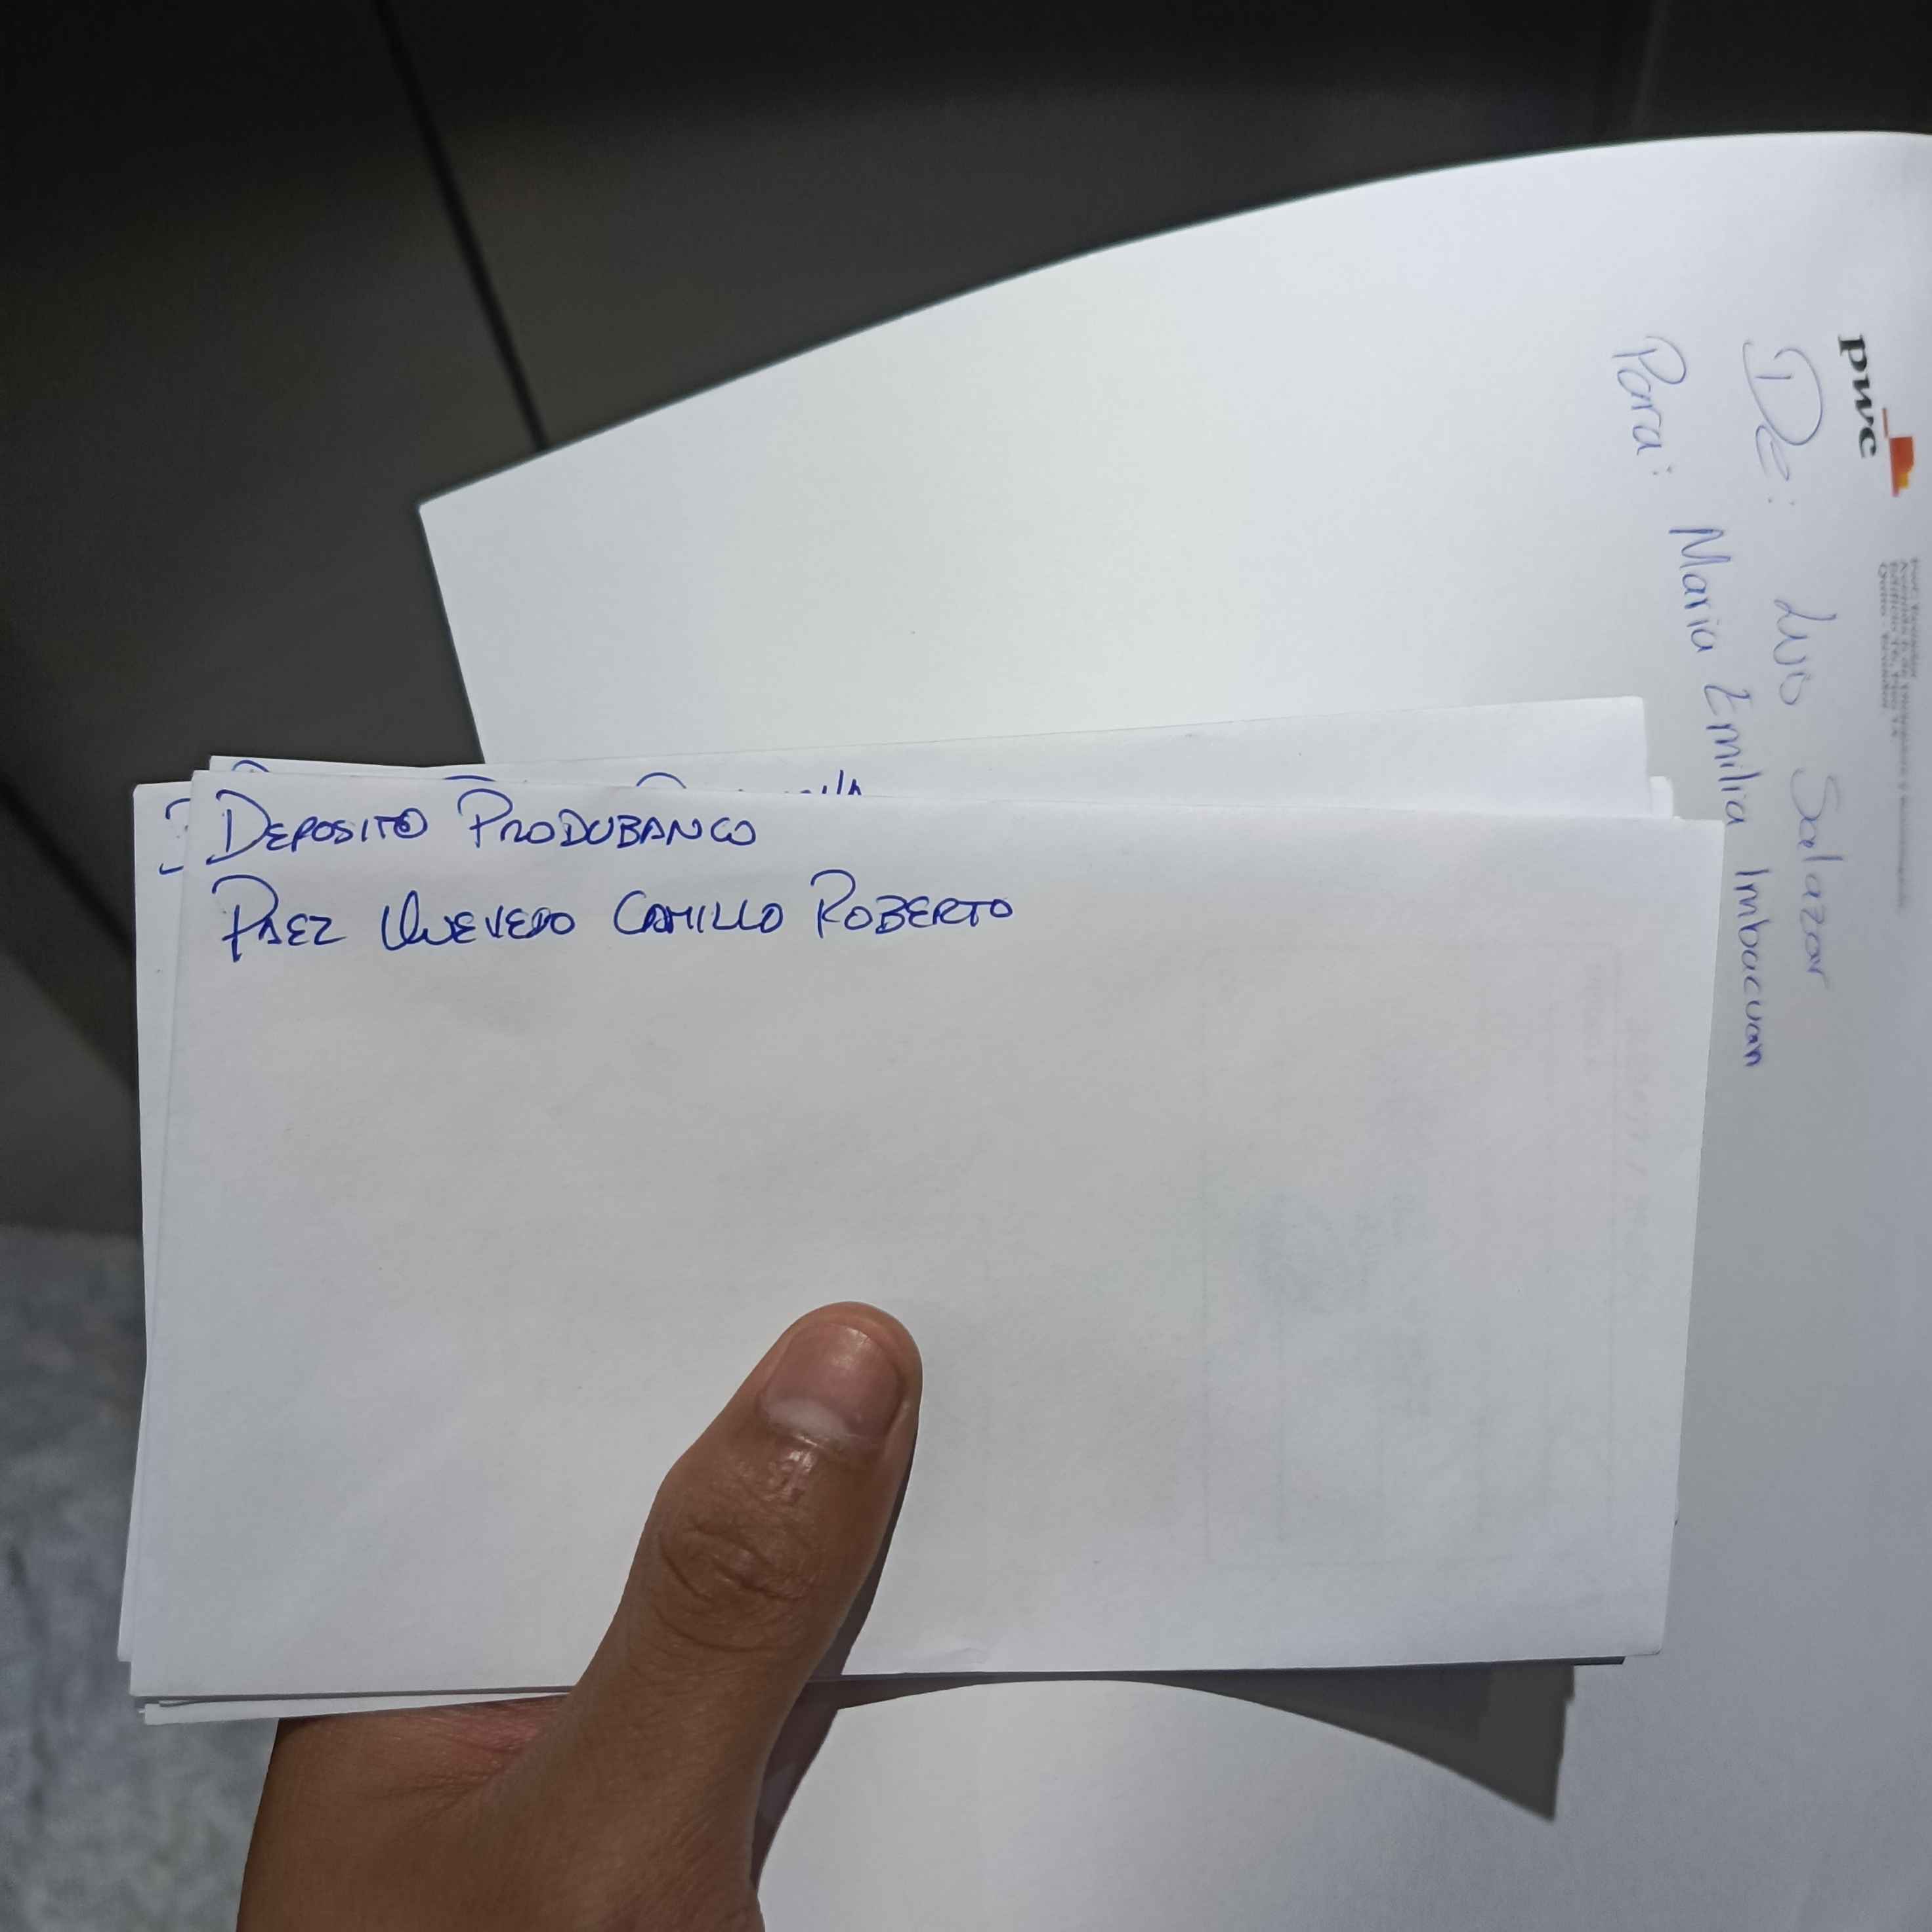 DEPOSITO PRODUBANCO
PAEZ QUEVEDO CAMILLO ROBERTO
pwc
De: Luis Salazar
Para: Maria Emilia Imbacuan